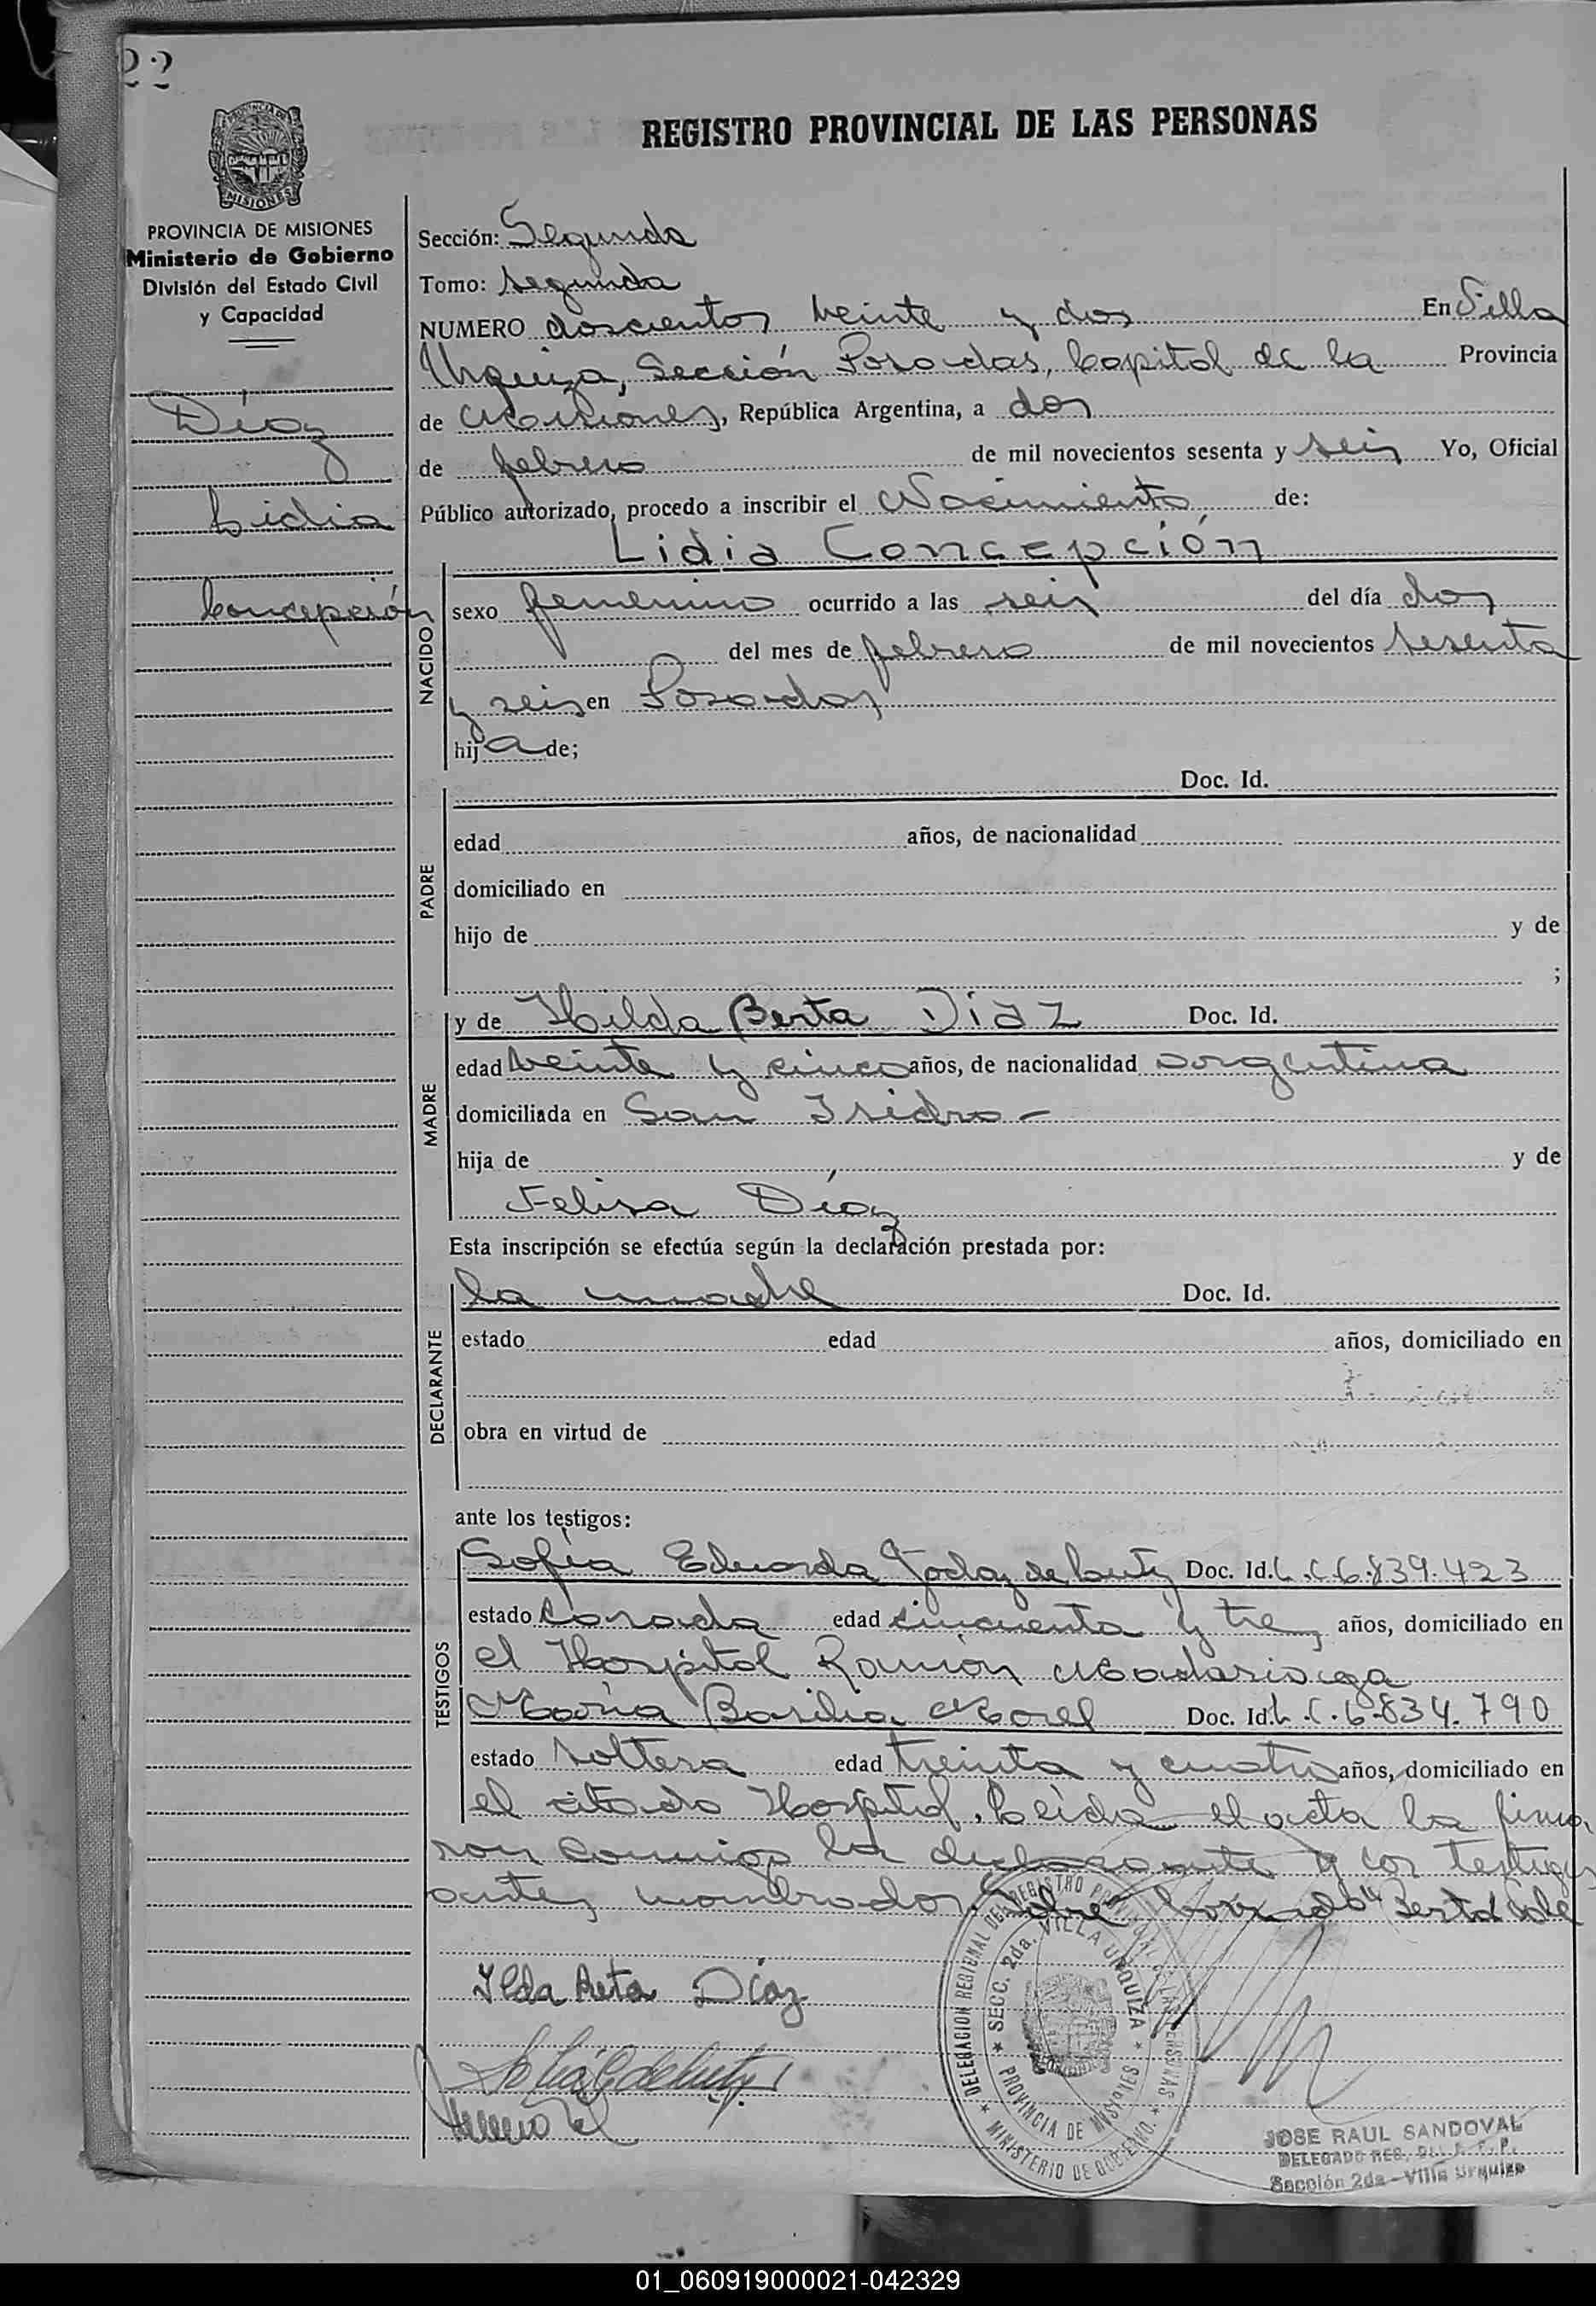 22
REGISTRO PROVINCIAL DE LAS PERSONAS
MISIONES
PROVINCIA DE MISIONES
Ministerio de Gobierno
División del Estado Civil
y Capacidad
Díaz
Lidia
Concepción
Sección: Segunda
Tomo: segunda
NUMERO doscientos veinte y dos En Villa
Urquiza, Sección Posadas, Capital de la Provincia
de Misiones, República Argentina, a dos
de febrero de mil novecientos sesenta y seis Yo, Oficial
Público autorizado, procedo a inscribir el Nacimiento de:
Lidia Concepción
NACIDO
sexo femenino ocurrido a las seis del día dos
del mes de febrero de mil novecientos sesenta
y seis en Posadas
hija de;
PADRE
Doc. Id.
edad años, de nacionalidad
domiciliado en
hijo de y de
;
MADRE
y de Hilda Berta Díaz Doc. Id.
edad veinte y cinco años, de nacionalidad argentina
domiciliada en San Isidro -
hija de y de
Felisa Díaz
Esta inscripción se efectúa según la declaración prestada por:
DECLARANTE
la madre Doc. Id.
estado edad años, domiciliado en
obra en virtud de
ante los testigos:
TESTIGOS
Sofía Eduarda Godoy de Doc. Id. L.C. 6.839.423
estado Casada edad cincuenta y tres años, domiciliado en
el Hospital Ramón Madariaga
María Basilia Morel Doc. Id. L.C. 6.834.790
estado soltera edad treinta y cuatro años, domiciliado en
el citado Hospital. Leída el acta la firma
ron conmigo la declarante y los testigos
antes nombrados. Sobre borrado "Berta" Vale
Ilda Berta Díaz
DELEGACION REGIONAL DEL REGISTRO PROVINCIAL DE LAS PERSONAS
SECC. 2da. VILLA URQUIZA
PROVINCIA DE MISIONES
MINISTERIO DE GOBIERNO
JOSE RAUL SANDOVAL
DELEGADO REG.
Sección 2da - Villa Urquiza
01_060919000021-042329